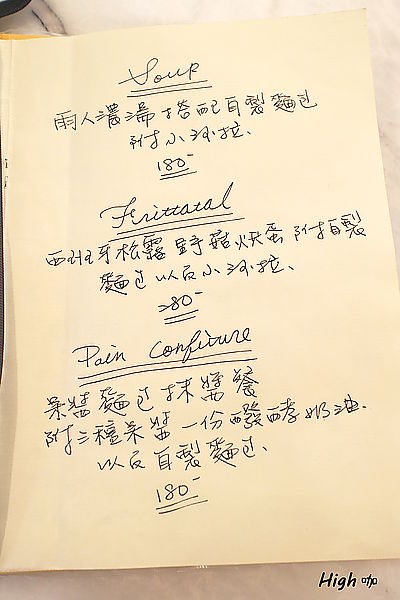 Soup
雨人濃湯搭配自製麵包
附小沙拉.
180-
Frittatal
西班牙松露野菇烘蛋附自製
麵包以及小沙拉.
280-
Pain Confiture
果醬麵包抹醬餐
附三種果醬一份發酵奶油.
以及自製麵包.
180-
High 咖